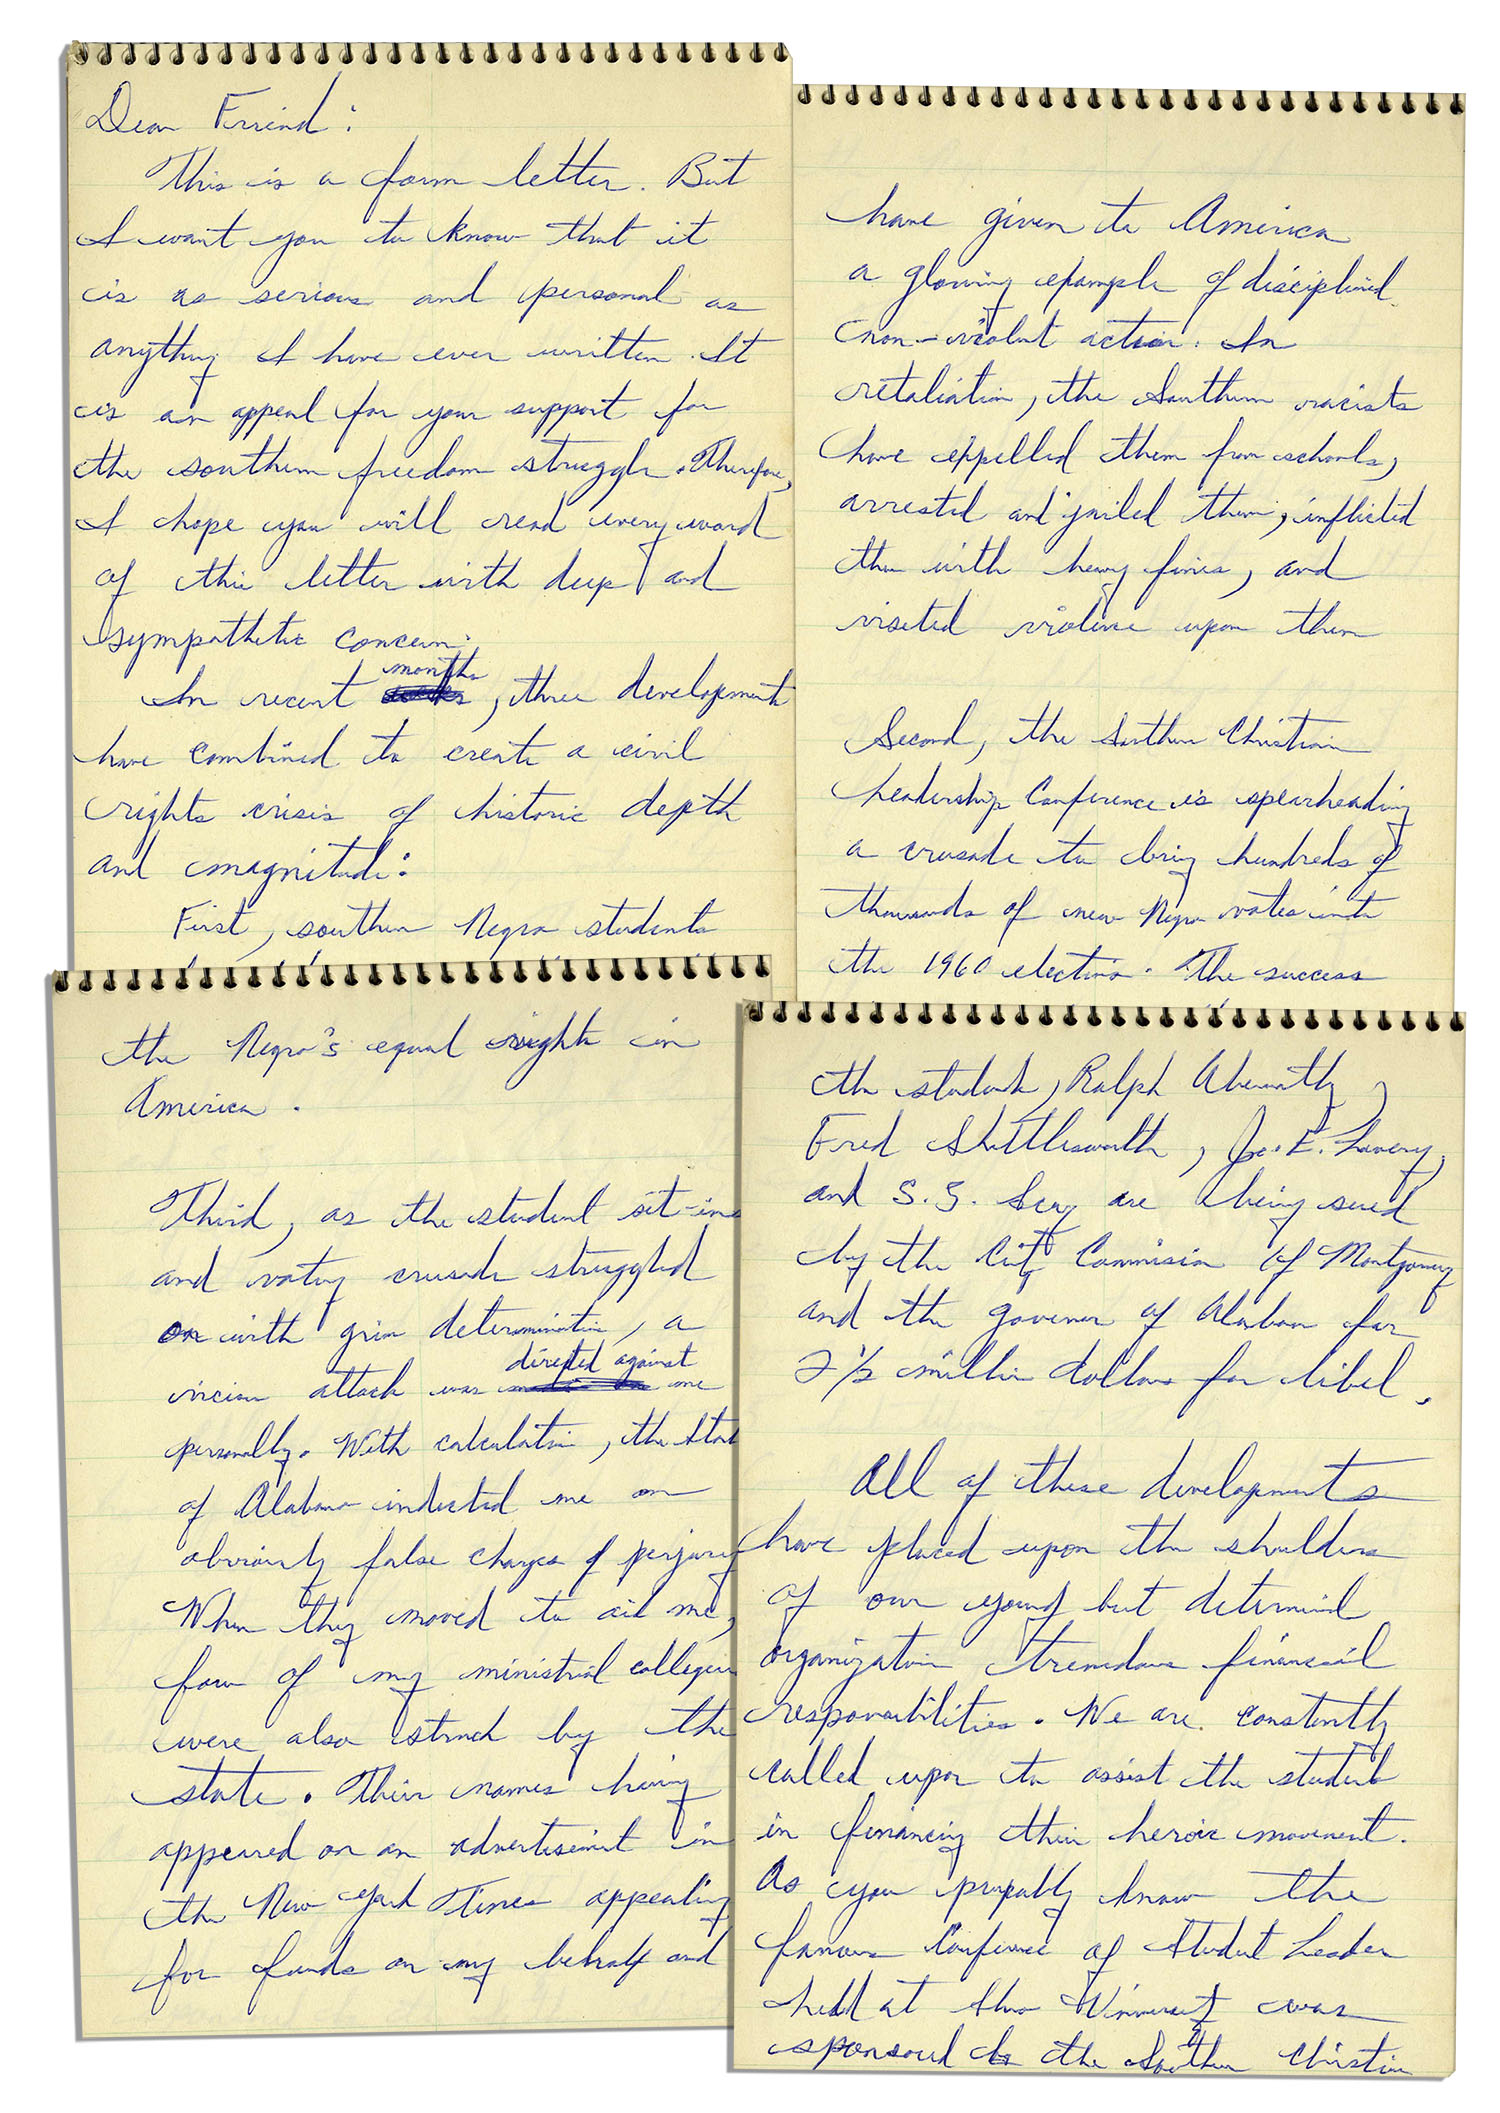 Dear Friend:
This is a form letter. But
I want you to know that it
is as serious and personal as
anything I have ever written. It
is an appeal for your support for
the southern freedom struggle. Therefore,
I hope you will read every word
of this letter with deep and
sympathetic concern.
In recent months, three developments
have combined to create a civil
rights crisis of historic depth
and magnitude:
First, southern Negro students
have given to America
a glowing example of disciplined
non-violent action. In
retaliation, the Southern racists
have expelled them from schools,
arrested and jailed them, inflicted
them with heavy fines, and
visited violence upon them
Second, the Southern Christian
Leadership Conference is spearheading
a crusade to bring hundreds of
thousands of new Negro votes into
the 1960 election. The success
the Negro's equal rights in
America.
Third, as the student sit-ins
and voting crusade struggled
on with grim determination, a
vicious attack was directed against me
personally. With calculation, the State
of Alabama indicted me on
obviously false charges of perjury
When they moved to me,
four of my ministrial collegues
were also struck by the
state. Their names having
appeared on an advertisement in
the New York Times appealing
for funds on my behalf and
the students, Ralph Abernathy,
Fred Shuttlesworth, Joe. E. Lowery,
and S. S. Seay are being sued
by the City Commission of Montgomery
and the governor of Alabama for
2 1/2 million dollars for libel.
All of these developments
have placed upon the shoulders
of our young but determined
organization tremendous financial
responsibilities. We are constantly
called upon to assist the students
in financing their heroic movement.
As you probably know the
famous Conference of Student Leaders
held at Shaw University was
sponsored by the Southern Christian